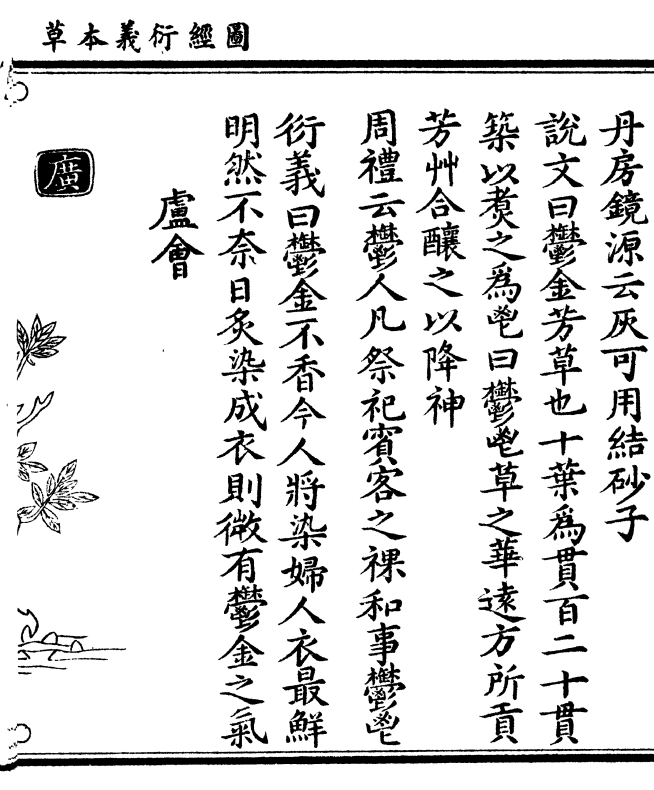 圖經衍義本草
丹房鏡源云灰可用結砂子
說文曰鬱金芳草也十葉爲貫百二十貫
築以煑之爲鬯曰鬱鬯草之華逺方所貢
芳艸合釀之以降神
周禮云鬱人凡祭祀賓客之祼和事鬱鬯
衍義曰鬱金不香今人將染婦人衣最鮮
明然不奈日炙染成衣則微有鬱金之氣
盧會
廣